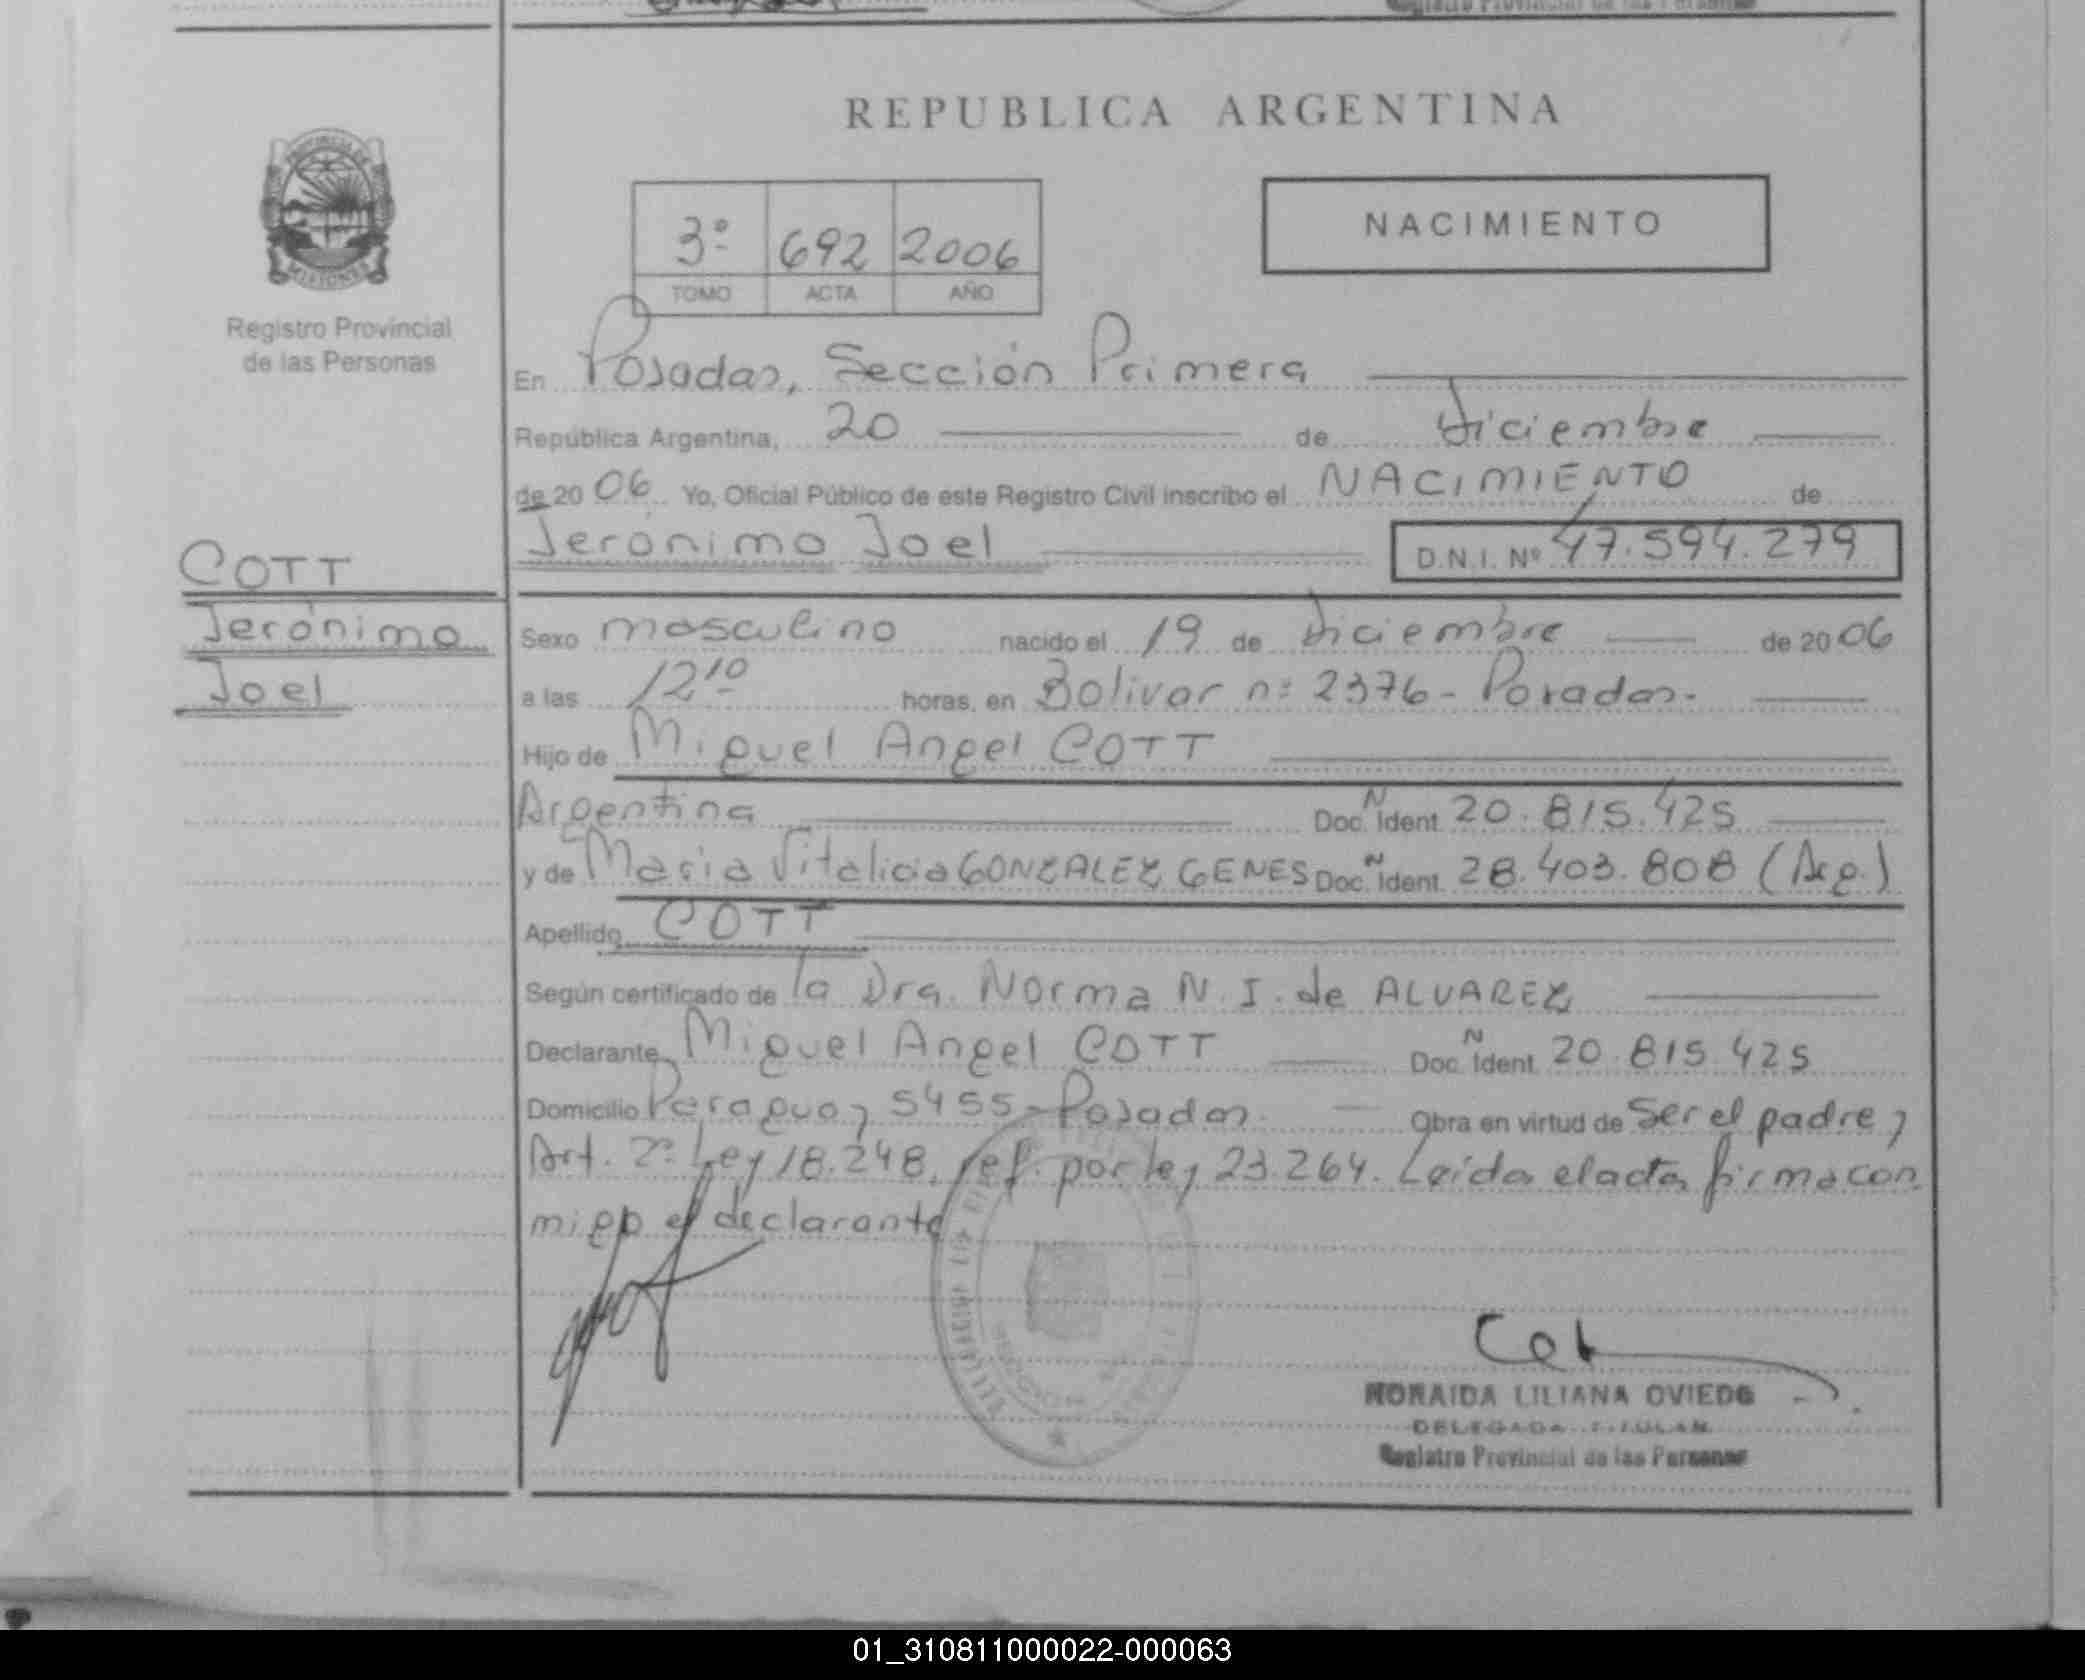 REPUBLICA ARGENTINA
PROVINCIA DE
MISIONES
Registro Provincial
de las Personas
3º 692 2006
TOMO ACTA AÑO
NACIMIENTO
En Posadas, Sección Primera
República Argentina, 20 de diciembre
de 2006 Yo, Oficial Público de este Registro Civil inscribo el NACIMIENTO de
Jerónimo Joel D.N.I. Nº 47.594.279
COTT
Jerónimo
Joel
Sexo masculino nacido el 19 de diciembre de 2006
a las 12 10 horas, en Bolivar nº 2376 - Posadas.
Hijo de Miguel Angel COTT
Argentina Doc. Ident. 20.815.425
y de Maria Vitalicia GONZALEZ GENES Doc. Ident. 28.403.808 (Arg.)
Apellido COTT
Según certificado de la Dra. Norma N. I. de ALVAREZ
Declarante Miguel Angel COTT Doc. Ident. 20.815.425
Domicilio Paraguay 5455 - Posadas. Obra en virtud de Ser el padre y
Art. 2º Ley 18.248, ref. por ley 23.264. Leída el acta, firma con
migo el declarante
NORAIDA LILIANA OVIEDO
DELEGADA TITULAR
Registro Provincial de las Personas
01_310811000022-000063